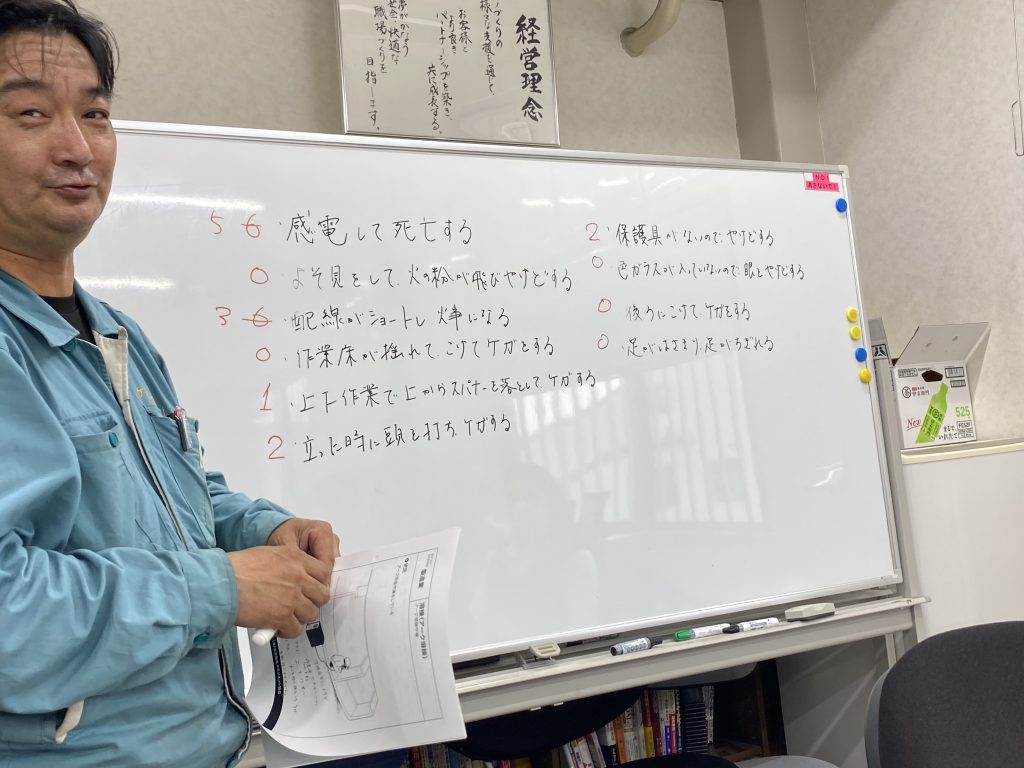 経営理念
づくりの
様々な支援を通じて、
お客様と
より良き
パートナーシップを築き、
共に成長する。
夢がかなう
安全、快適な
職場づくりを
目指します。
NO!
消さないで!
5 6 ・感電して死亡する
0 よそ見をして、火の粉が飛びやけどする
3 6 ・配線がショートし、火事になる
0 ・作業床が揺れて、こけてケガをする
1 ・上下作業で上からスパナーを落として、ケガする
2 ・立った時に頭を打ち、ケガする
2 ・保護具がないので、やけどする
0 色ガラスが入っていないので、眼をやけどする
0 後ろにこけて、ケガをする
0 ・足がはさまり、足がちぎれる
New
525
まるで、
いれたて